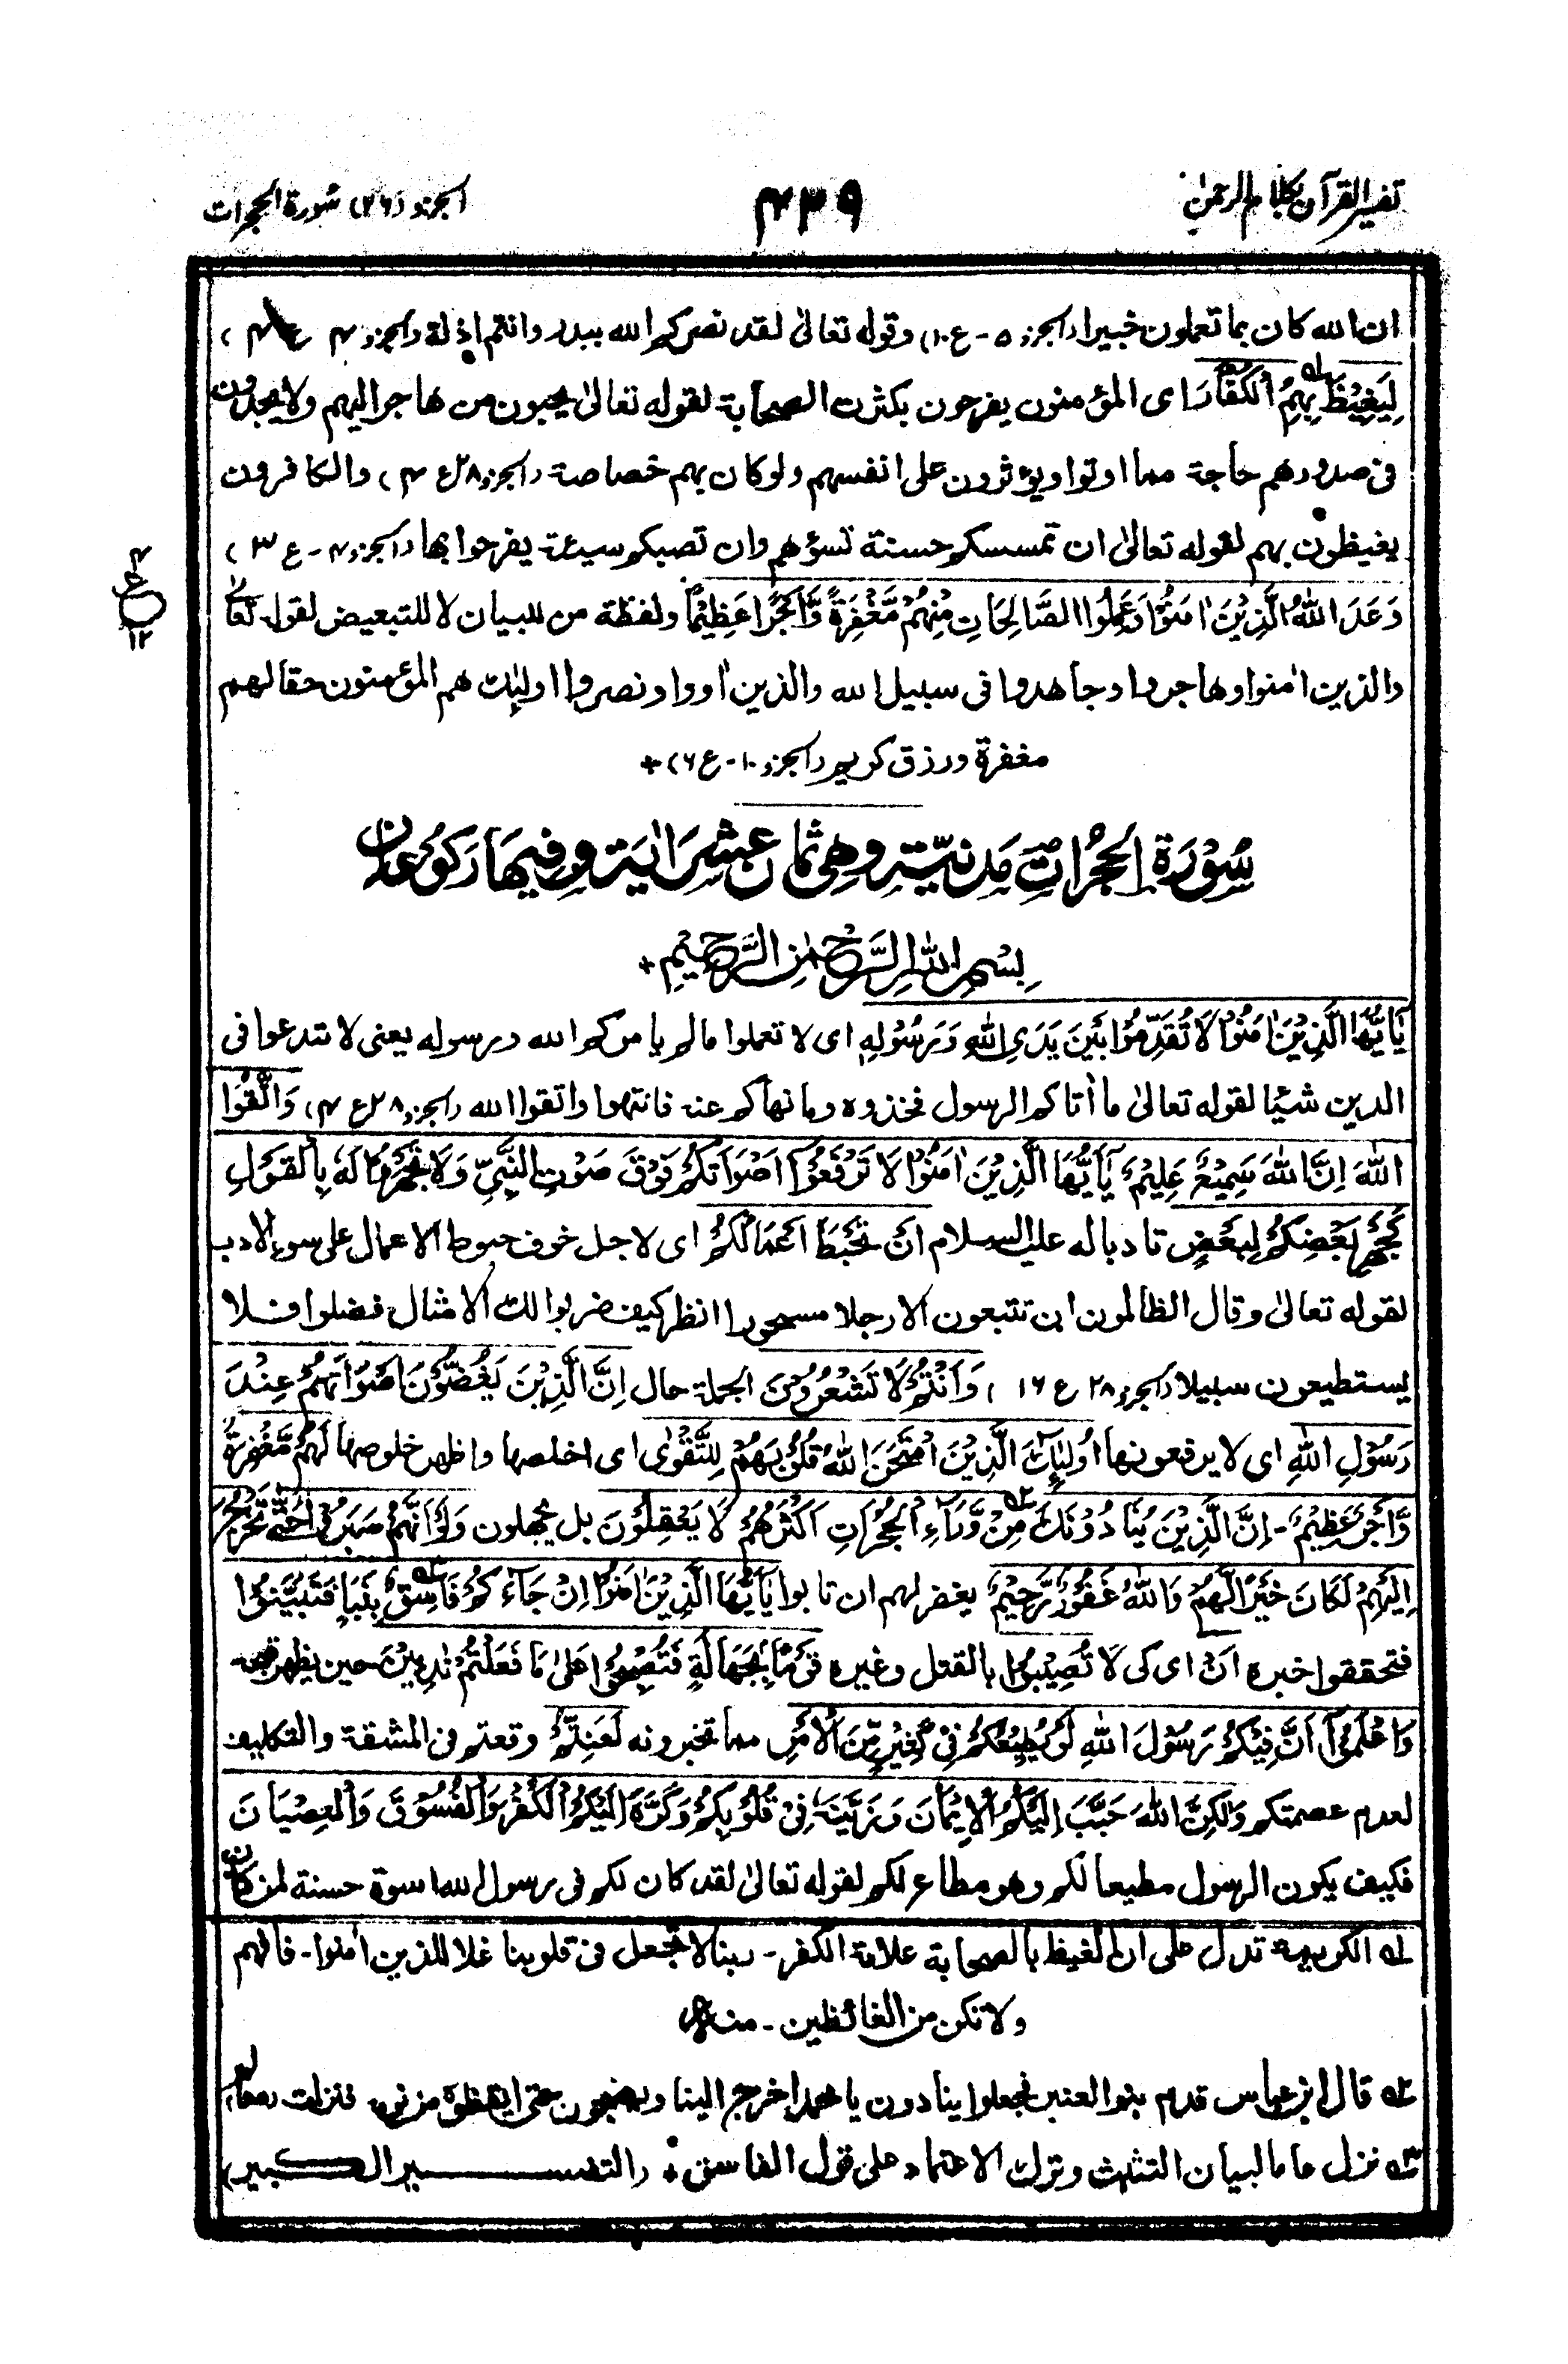 تفسیر القرآن بکلام الرحمٰن
۴۳۹
الجزو (۲۶) سُورة الحجرات
ان الله كان بما تعملون خبيرا (الجزو ۵ - ع ۱۰) وقوله تعالیٰ لقد نصركم الله ببدر وانتم اذلة (الجزو ۴ ع ۴)
لِيَغِيْظَ بِهِمُ الْكُفَّارَ ای المؤمنون يفرحون بكثرت الصحابة لقوله تعالیٰ يحبون من هاجر اليهم ولا يجدون
فی صدورهم حاجة مما اوتوا ويؤثرون علی انفسهم ولو كان بهم خصاصة (الجزو ۲۸ ع ۴) والكافرون
يغيظون بهم لقوله تعالیٰ ان تمسسكم حسنة تسؤهم وان تصبكم سيئة يفرحوا بها (الجزو ۴ - ع ۳)
وَعَدَ اللّٰهُ الَّذِيْنَ اٰمَنُوْا وَعَمِلُوا الصَّالِحَاتِ مِنْهُمْ مَّغْفِرَةً وَّاَجْرًا عَظِيْمًا ولفظة من للبيان لا للتبعيض لقوله تعالیٰ
۴
ع
۱۲
والذين اٰمنوا وهاجروا وجاهدوا فی سبيل الله والذين اٰووا ونصروا اولٰئك هم المؤمنون حقا لهم
مغفرة ورزق كريم (الجزو ۱۰ - ع ۶) +
سُوْرَةُ الحُجُرَاتِ مَدَنِيَّة وهِیَ ثمان عَشِرَ اٰيَة وفِيهَا رَكُوْعَان
بِسْمِ اللّٰهِ الرَّحْمٰنِ الرَّحِيْمِ +
يَٓا اَيُّهَا الَّذِيْنَ اٰمَنُوْا لَا تُقَدِّمُوْا بَيْنَ يَدَیِ اللّٰهِ وَرَسُوْلِهٖ ای لا تعملوا ما لم يامركم الله ورسوله يعنی لا تدعوا فی
الدين شيئا لقوله تعالیٰ ما أتاكم الرسول فخذوه وما نهاكم عنه فانتهوا واتقوا الله (الجزو ۲۸ ع ۴) وَاتَّقُوا
اللّٰهَ اِنَّ اللّٰهَ سَمِيْعٌ عَلِيْمٌ يَٓا اَيُّهَا الَّذِيْنَ اٰمَنُوْا لَا تَرْفَعُوْٓا اَصْوَاتَكُمْ فَوْقَ صَوْتِ النَّبِيِّ وَلَا تَجْهَرُوْا لَهٗ بِالْقَوْلِ
كَجَهْرِ بَعْضِكُمْ لِبَعْضٍ تادبا له عليه السلام اَنْ تَحْبَطَ اَعْمَالُكُمْ ای لاجل خوف حبوط الاعمال علی سوء الادب
لقوله تعالیٰ وقال الظالمون ان تتبعون الا رجلا مسحورا انظر كيف ضربوا لك الامثال فضلوا فلا
يستطيعون سبيلا (الجزو ۲۸ ع ۱۶) وَاَنْتُمْ لَا تَشْعُرُوْنَ الجملة حال اِنَّ الَّذِيْنَ يَغُضُّوْنَ اَصْوَاتَهُمْ عِنْدَ
رَسُوْلِ اللّٰهِ ای لا يرفعونها اُولٰٓئِكَ الَّذِيْنَ امْتَحَنَ اللّٰهُ قُلُوْبَهُمْ لِلتَّقْوٰی ای اخلصها واظهر خلوصها لَهُمْ مَّغْفِرَةٌ
وَّاَجْرٌ عَظِيْمٌ - اِنَّ الَّذِيْنَ يُنَادُوْنَكَ مِنْ وَّرَآءِ الْحُجُرَاتِ اَكْثَرُهُمْ لَا يَعْقِلُوْنَ بل يجهلون وَلَوْ اَنَّهُمْ صَبَرُوْا حَتّٰی تَخْرُجَ
اِلَيْهِمْ لَكَانَ خَيْرًا لَّهُمْ وَاللّٰهُ غَفُوْرٌ رَّحِيْمٌ يغفر لهم ان تابوا يَٓا اَيُّهَا الَّذِيْنَ اٰمَنُوْٓا اِنْ جَآءَكُمْ فَاسِقٌ بِنَبَإٍ فَتَبَيَّنُوْٓا
فتحققوا خبره اَنْ ای كی لا تُصِيْبُوْا بالقتل وغيره قَوْمًا بِجَهَالَةٍ فَتُصْبِحُوْا عَلٰی مَا فَعَلْتُمْ نٰدِمِيْنَ حين يظهر
وَاعْلَمُوْٓا اَنَّ فِيْكُمْ رَسُوْلَ اللّٰهِ لَوْ يُطِيْعُكُمْ فِیْ كَثِيْرٍ مِّنَ الْاَمْرِ مما تخبرونه لَعَنِتُّمْ وقعتم فی المشقة والتكليف
لعدم عصمتكم وَلٰكِنَّ اللّٰهَ حَبَّبَ اِلَيْكُمُ الْاِيْمَانَ وَزَيَّنَهٗ فِیْ قُلُوْبِكُمْ وَكَرَّهَ اِلَيْكُمُ الْكُفْرَ وَالْفُسُوْقَ وَالْعِصْيَانَ
فكيف يكون الرسول مطيعا لكم وهو مطاع لكم لقوله تعالیٰ لقد كان لكم فی رسول الله اسوة حسنة لمن كان
۱ الكريمة تدل علی ان الغيظ بالصحابة علامة الكفر - ربنا لا تجعل فی قلوبنا غلا للذين اٰمنوا - فافهم
ولا تكن من الغائظين - منه
۲ قال ابن عباس قدم بنو العنبر فجعلوا ينادون يا محمد اخرج الينا ويصيحون حتی ايقظوه من نومه فنزلت (معالم)
۳ نزل عاما لبيان التثبت وترك الاعتماد علی قول الفاسق + (التفسير الكبير)